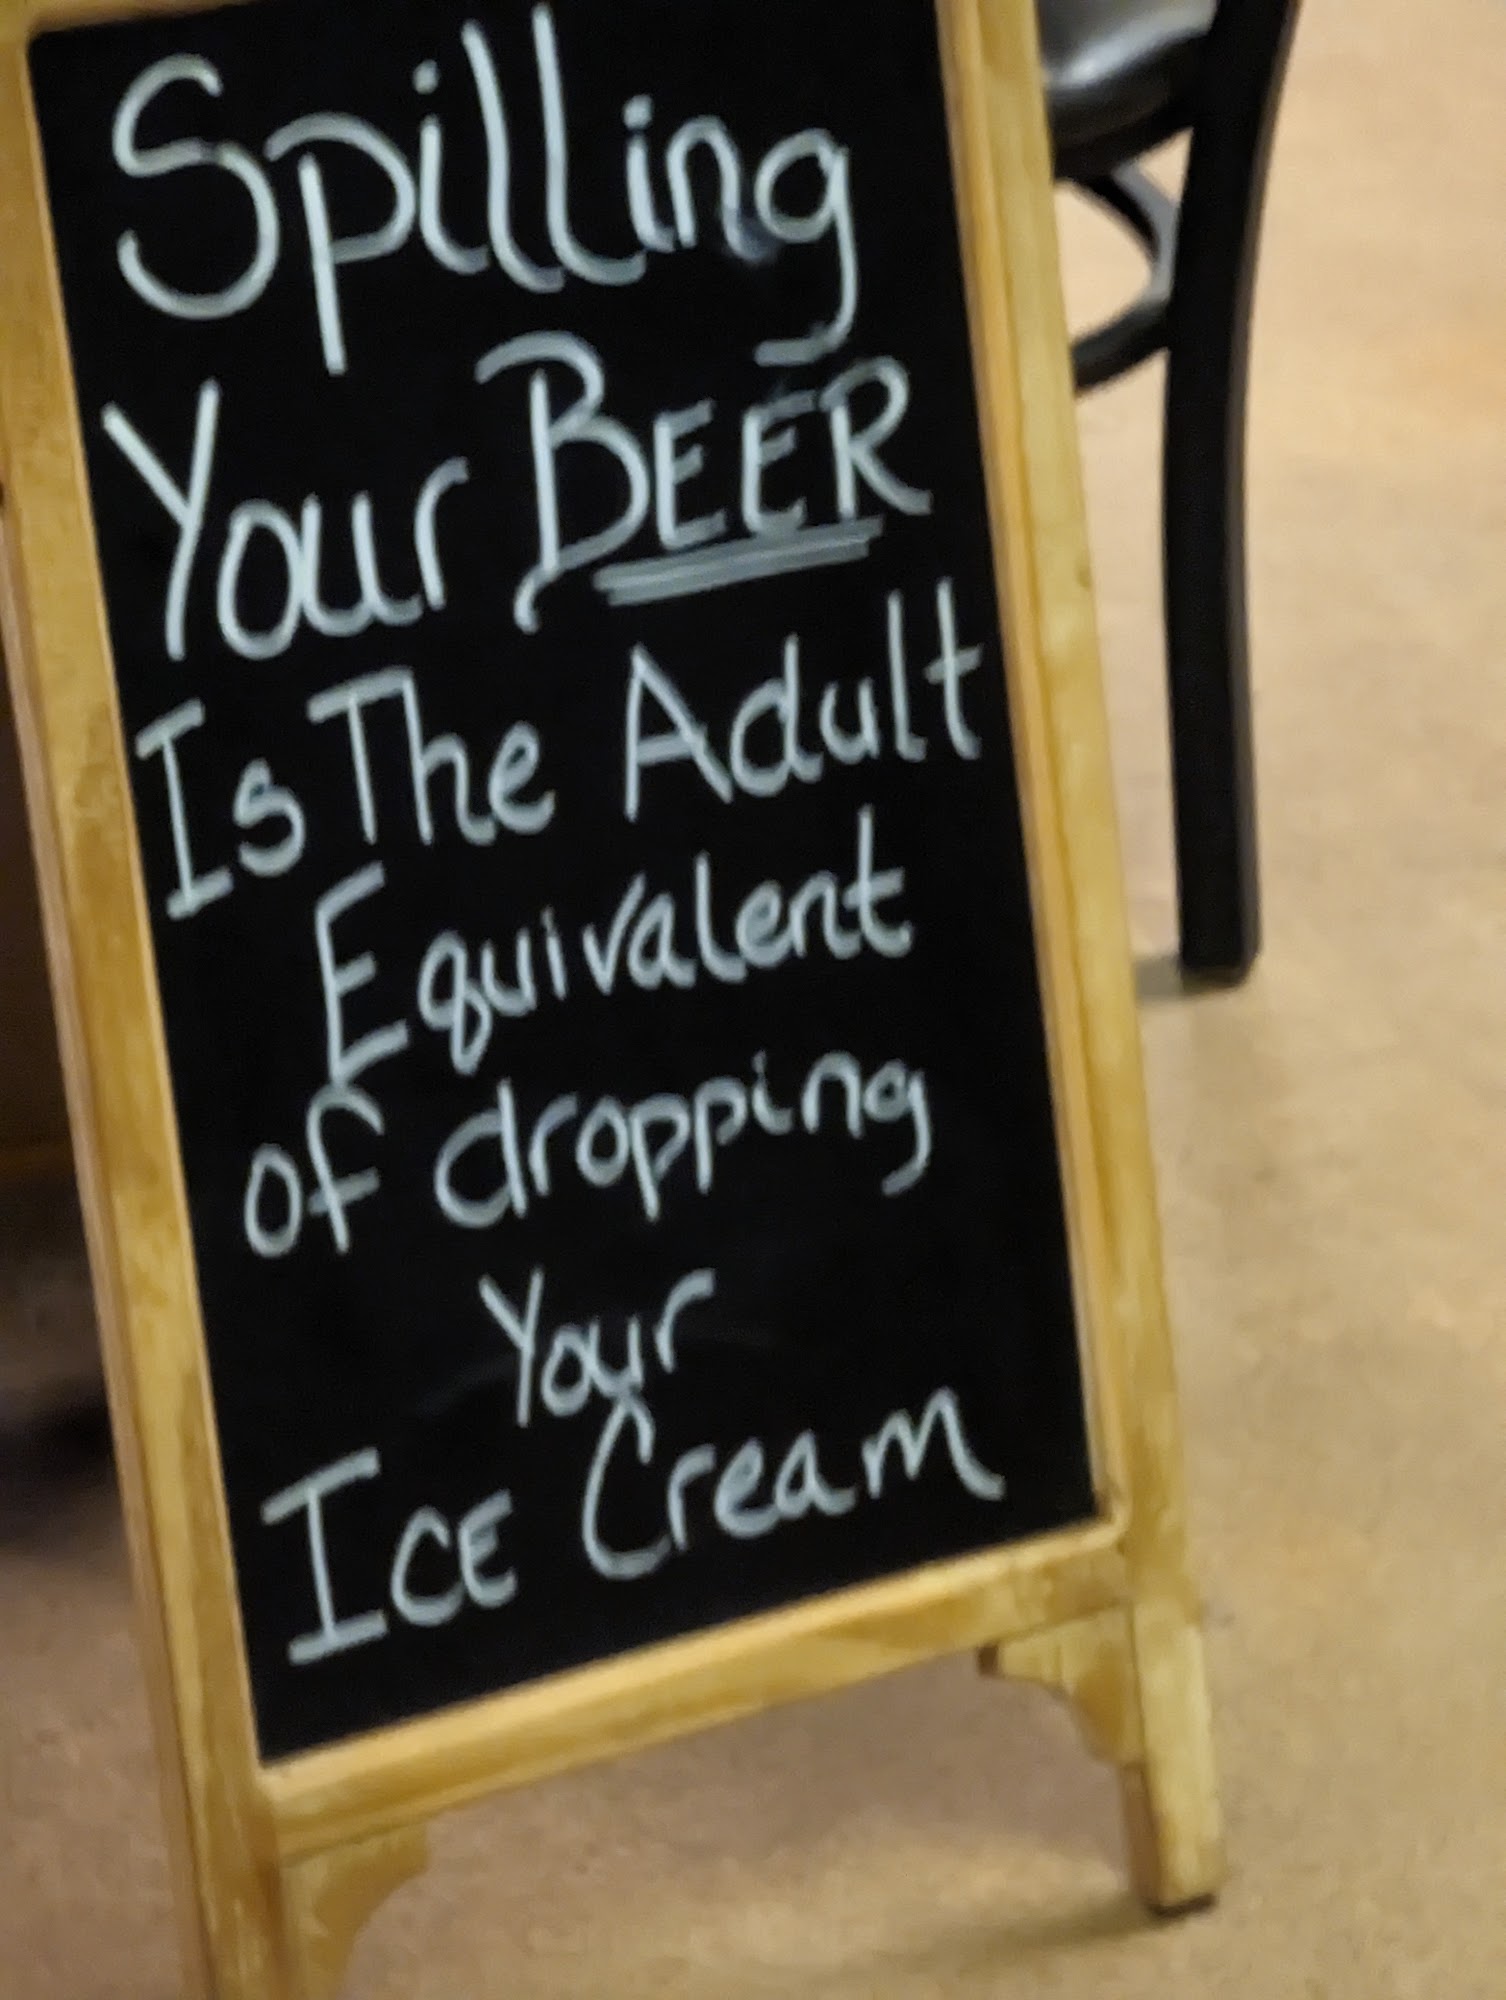 Spilling
Your BEER
Is The Adult
Equivalent
of dropping
Your
ICE Cream